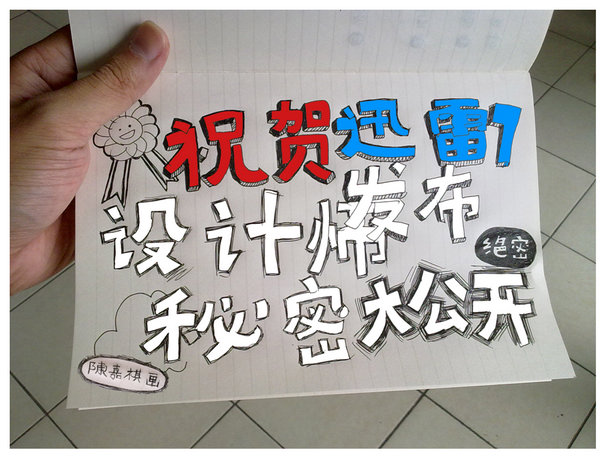 祝贺迅雷7
设计师发布
绝密
秘密大公开
陳嘉棋画